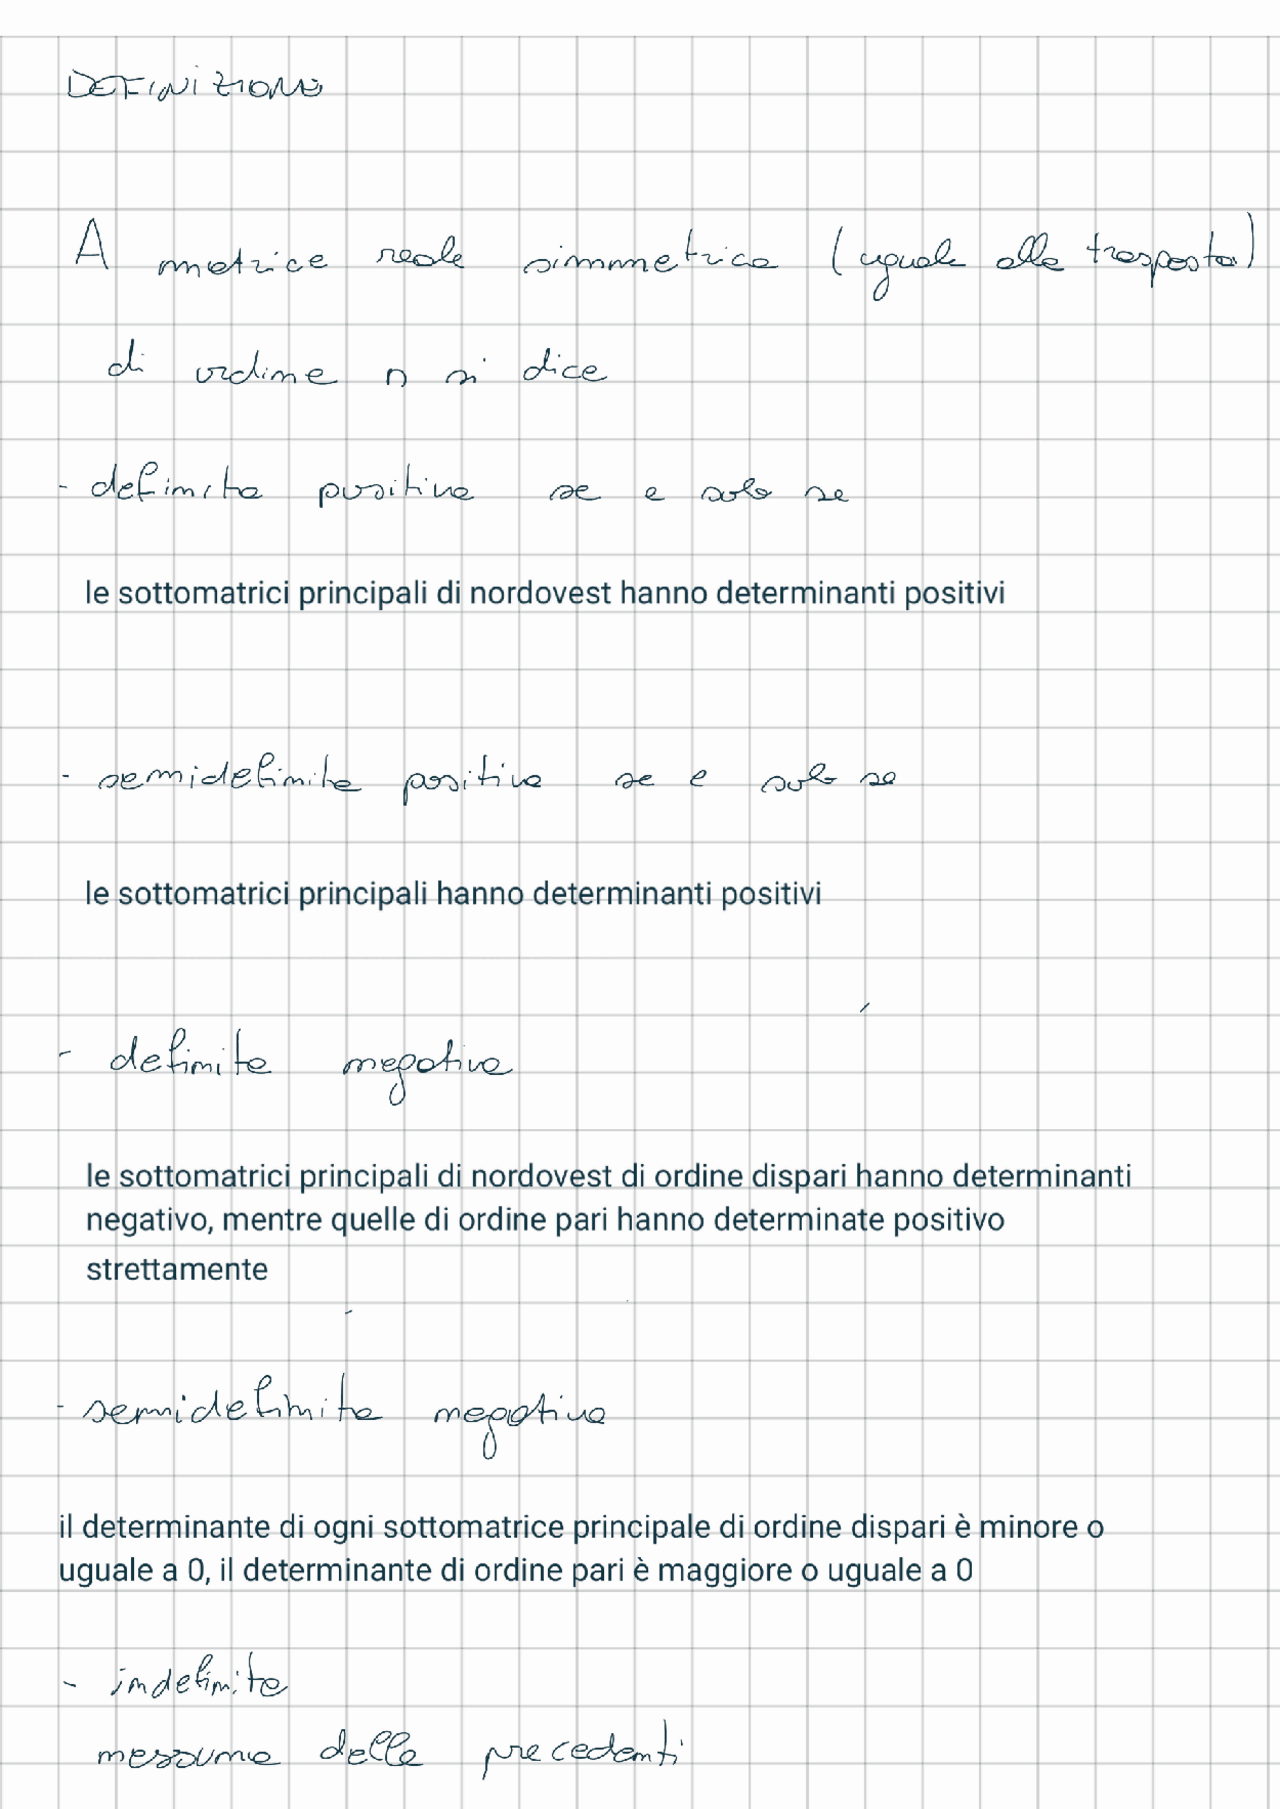 DEFINIZIONE
A matrice reale simmetrica (uguale alla trasposta)
di ordine n si dice
- definita positiva se e solo se
le sottomatrici principali di nordovest hanno determinanti positivi
- semidefinita positiva se e solo se
le sottomatrici principali hanno determinanti positivi
- definita negativa
le sottomatrici principali di nordovest di ordine dispari hanno determinanti
negativo, mentre quelle di ordine pari hanno determinate positivo
strettamente
- semidefinita negativa
il determinante di ogni sottomatrice principale di ordine dispari è minore o
uguale a 0, il determinante di ordine pari è maggiore o uguale a 0
- indefinita
nessuna delle precedenti